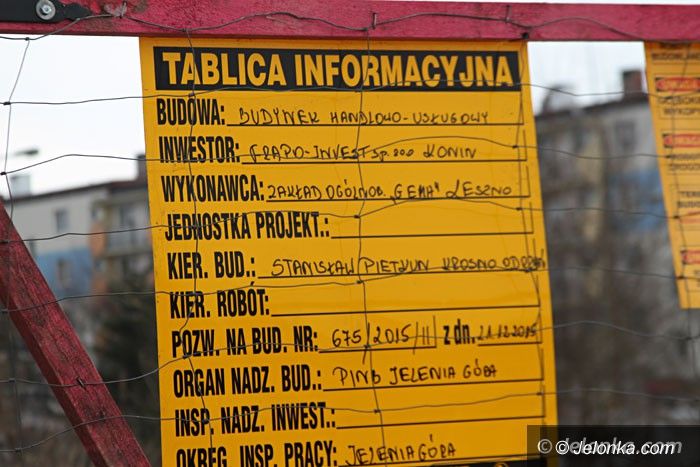 TABLICA INFORMACYJNA
BUDOWA: BUDYNEK HANDLOWO-USŁUGOWY
INWESTOR: FRAPO-INVEST SP. ZOO KONIN
WYKONAWCA: ZAKŁAD OGÓLNOB. "GEMA" LESZNO
JEDNOSTKA PROJEKT.:
KIER. BUD.: STANISŁAW PIETKUN KROSNO ODRZAŃ
KIER. ROBÓT:
POZW. NA BUD. NR: 675/2015/II z dn. 21.12.2015
ORGAN NADZ. BUD.: PINB JELENIA GÓRA
INSP. NADZ. INWEST.:
OKRĘG. INSP. PRACY: JELENIA GÓRA
© Jelonka.com